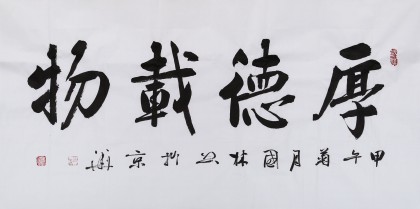 厚德載物
甲午菊月國林书於京華